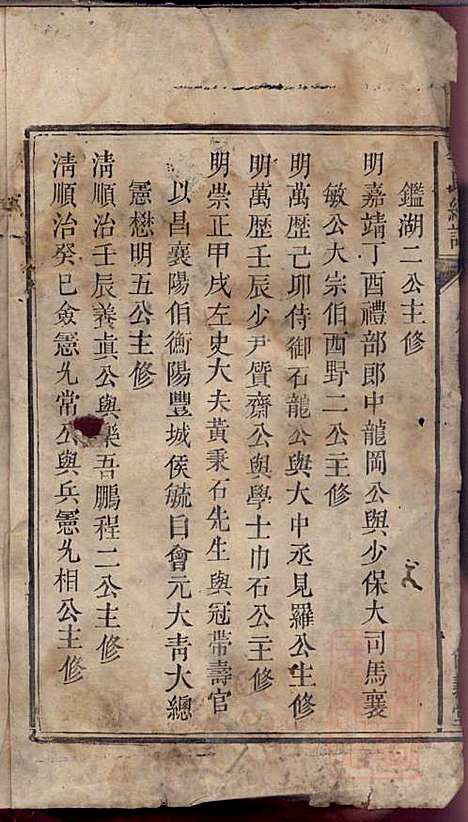 鑑湖二公主修
明嘉靖丁酉禮部郎中龍岡公與少保大司馬襄
敏公大宗伯西野二公主修
明萬歷己卯侍御石龍公與大中丞見羅公主修
明萬歷壬辰少尹質齋公與學士巾石公主修
明崇正甲戌左史大夫黃秉石先生與冠帶壽官
以昌襄陽伯衡陽豐城侯毓日會元大青大總
憲懋明五公主修
淸順治壬辰養眞公與樂吾鵬程二公主修
淸順治癸巳僉憲允常公與兵憲允相公主修